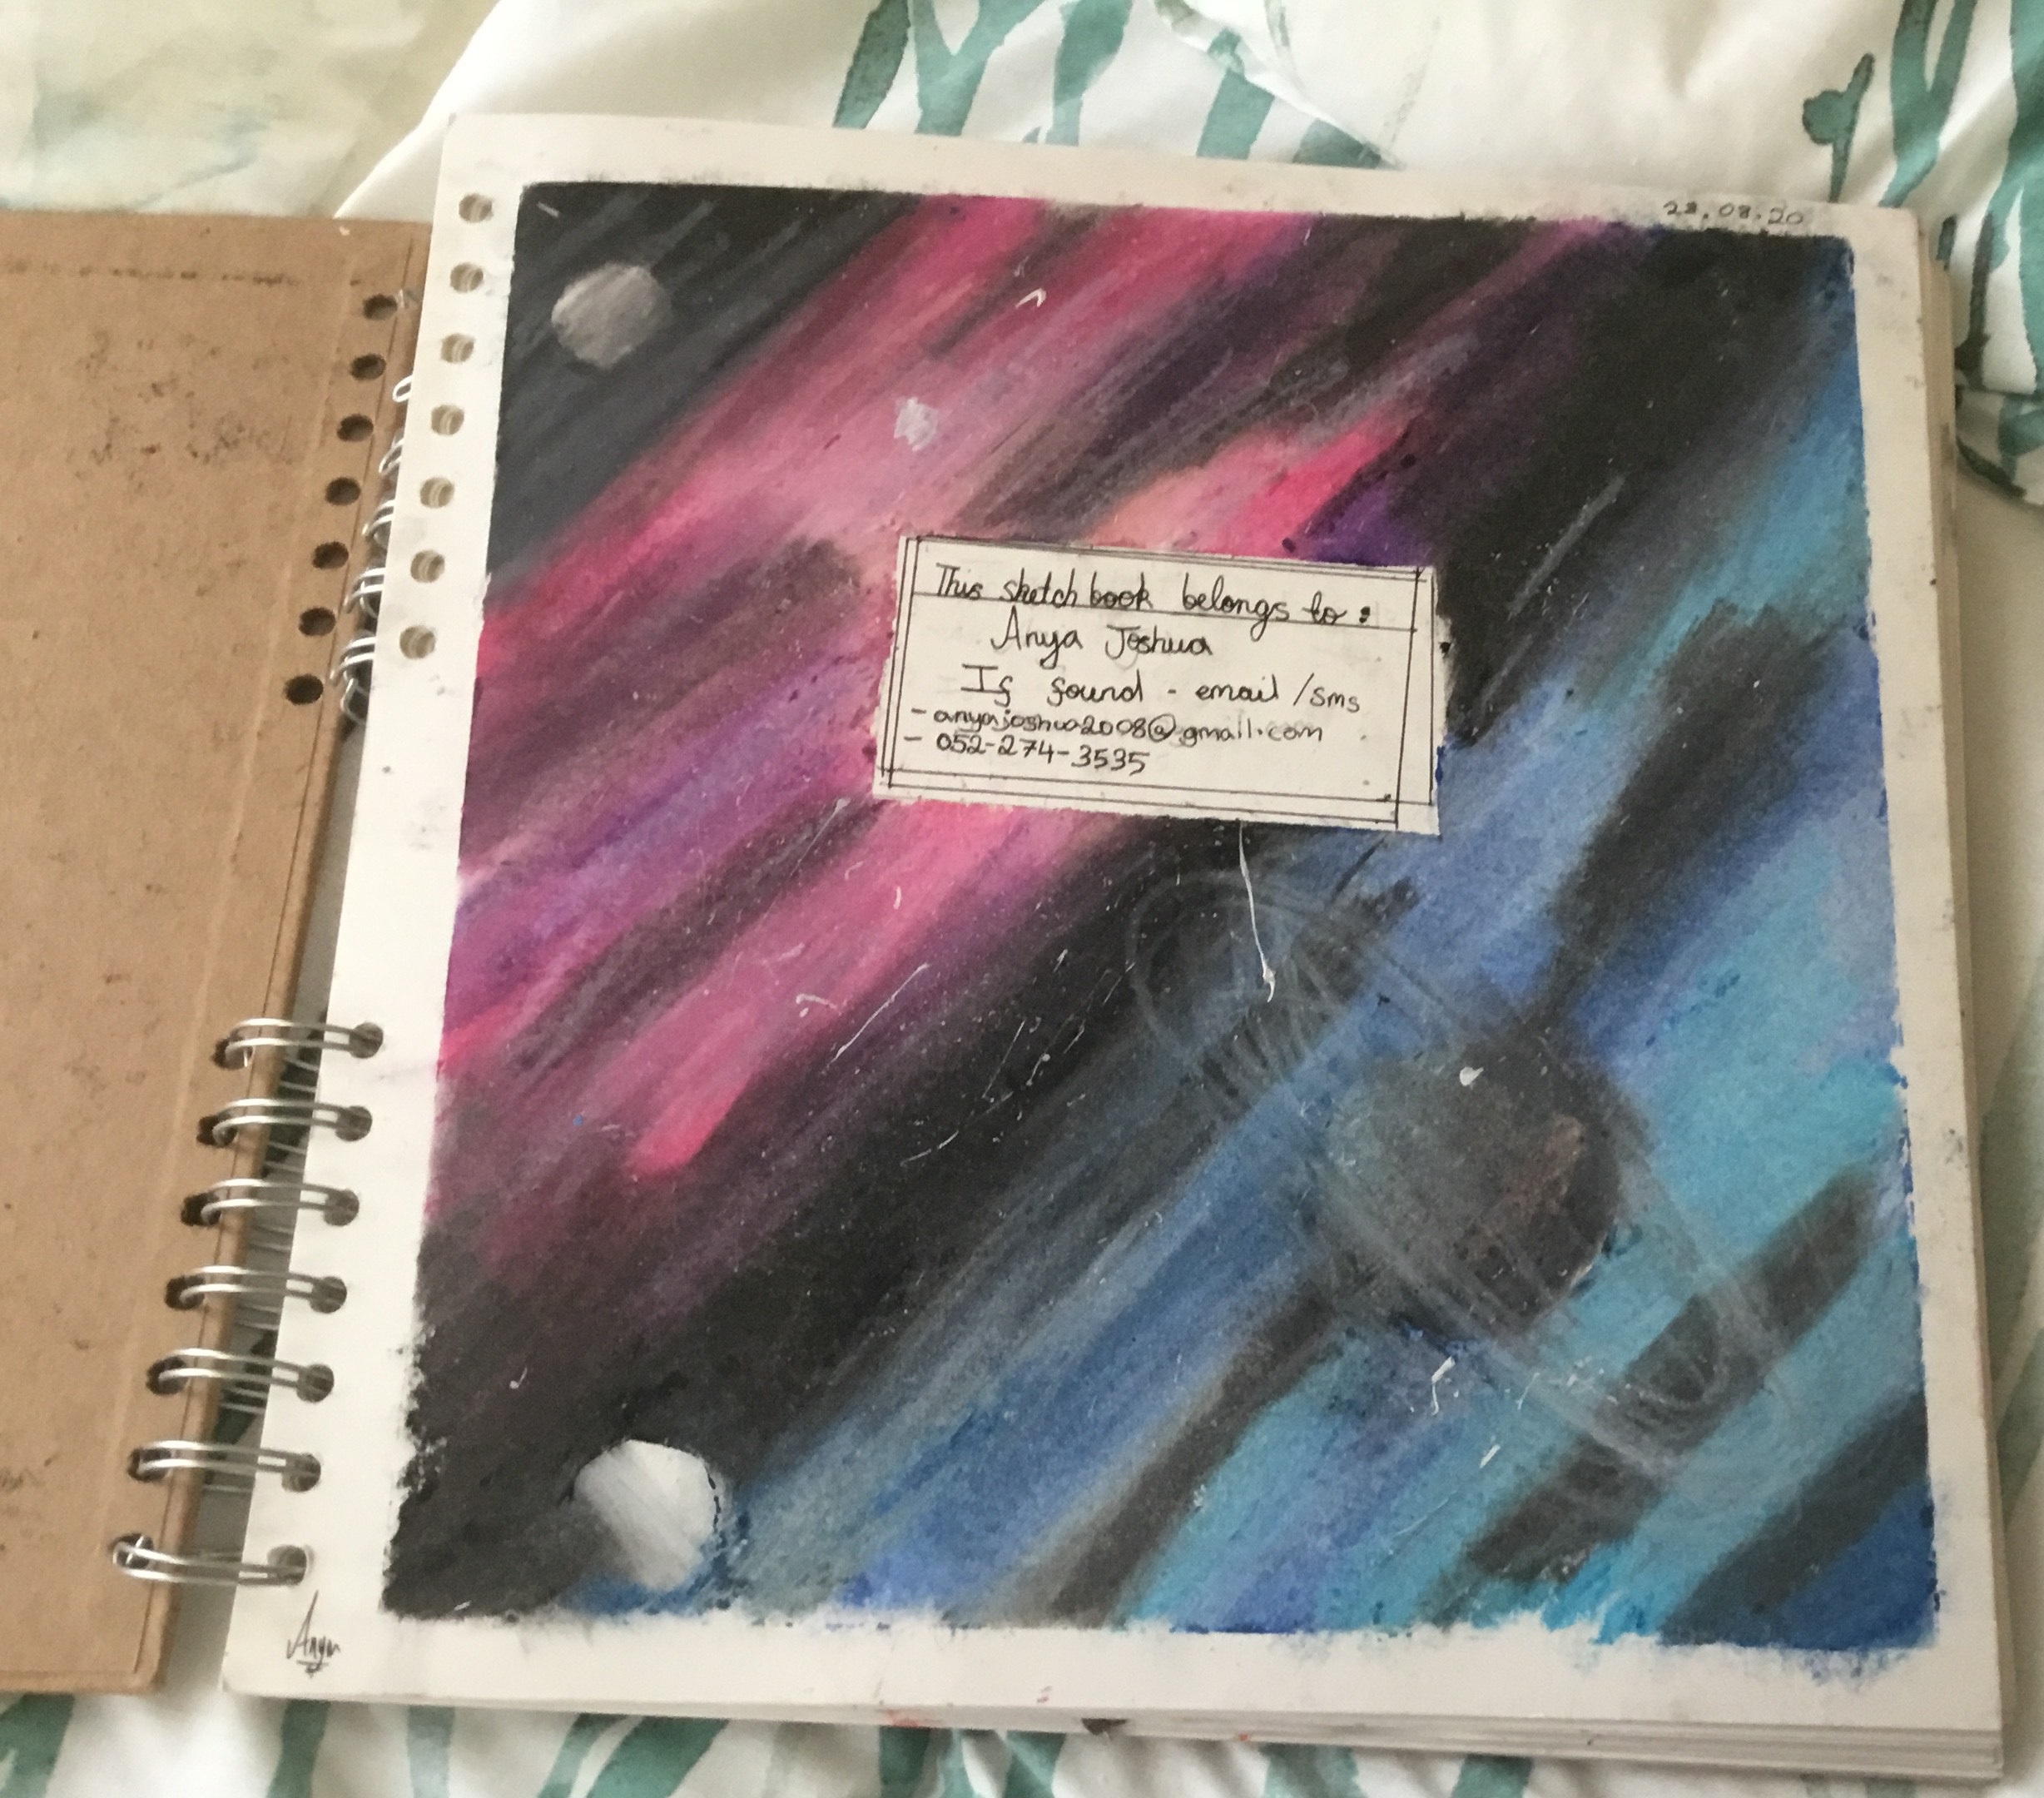 28.08.20
This sketchbook belongs to:
Anya Joshua
If found - email/sms
- anyajoshua2008@gmail.com
- 052-274-3535
Anya